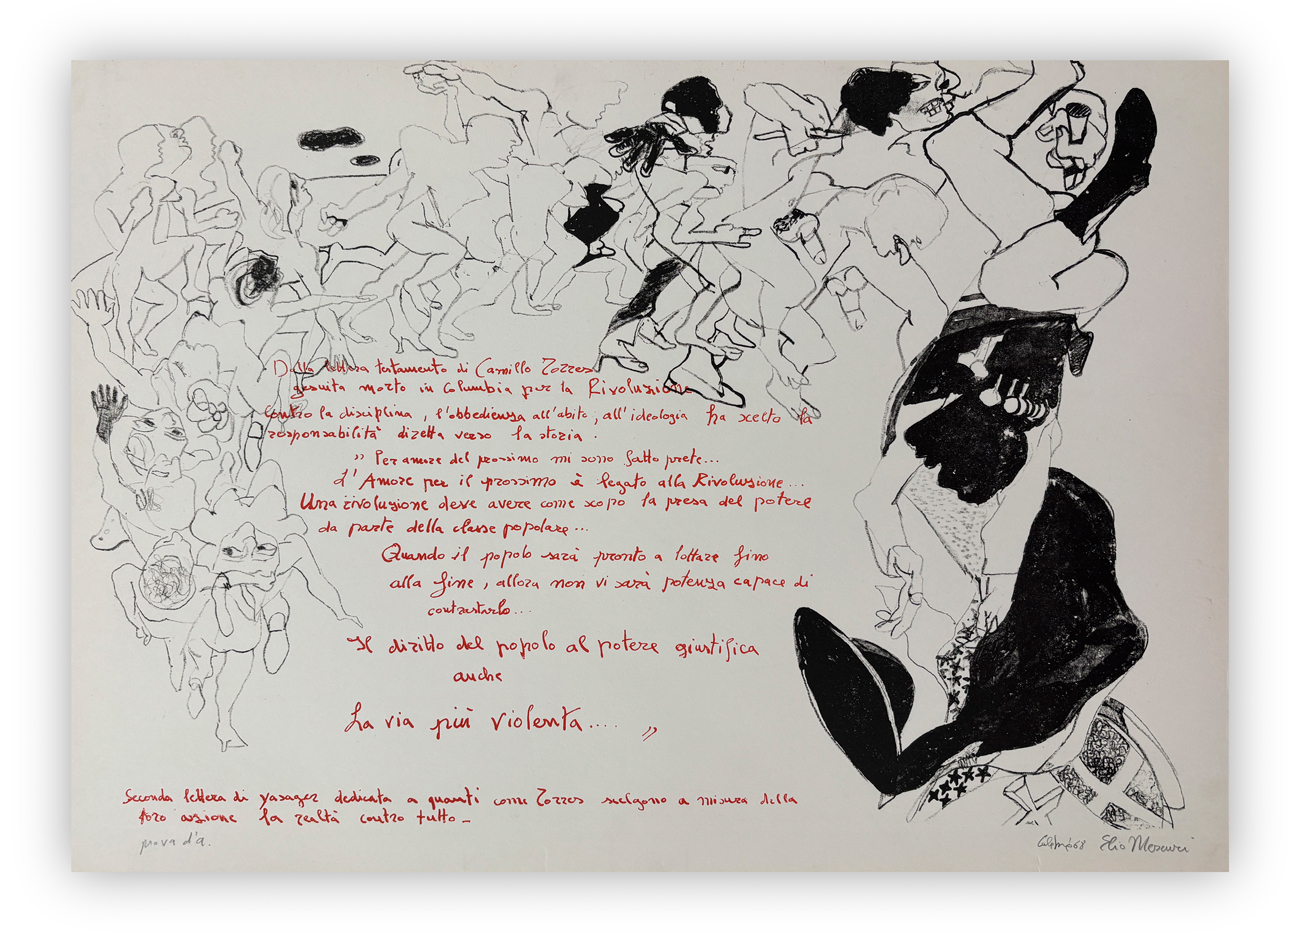 Dalla lettera testamento di Camillo Torres
gesuita morto in Columbia per la Rivoluzione
contro la disciplina, l'obbedienza all'abito, all'ideologia ha scelto la
responsabilità diretta verso la storia.
" Per amore del prossimo mi sono fatto prete...
L'Amore per il prossimo è legato alla Rivoluzione...
Una rivoluzione deve avere come scopo la presa del potere
da parte della classe popolare...
Quando il popolo sarà pronto a lottare fino
alla fine, allora non vi sarà potenza capace di
contrastarlo...
Il diritto del popolo al potere giustifica
anche
La via più violenta.... "
Seconda lettera di dedicata a quanti come Torres scelgono a misura della
loro azione la realtà contro tutto -
prova d'a.
68 Elio Mercuri